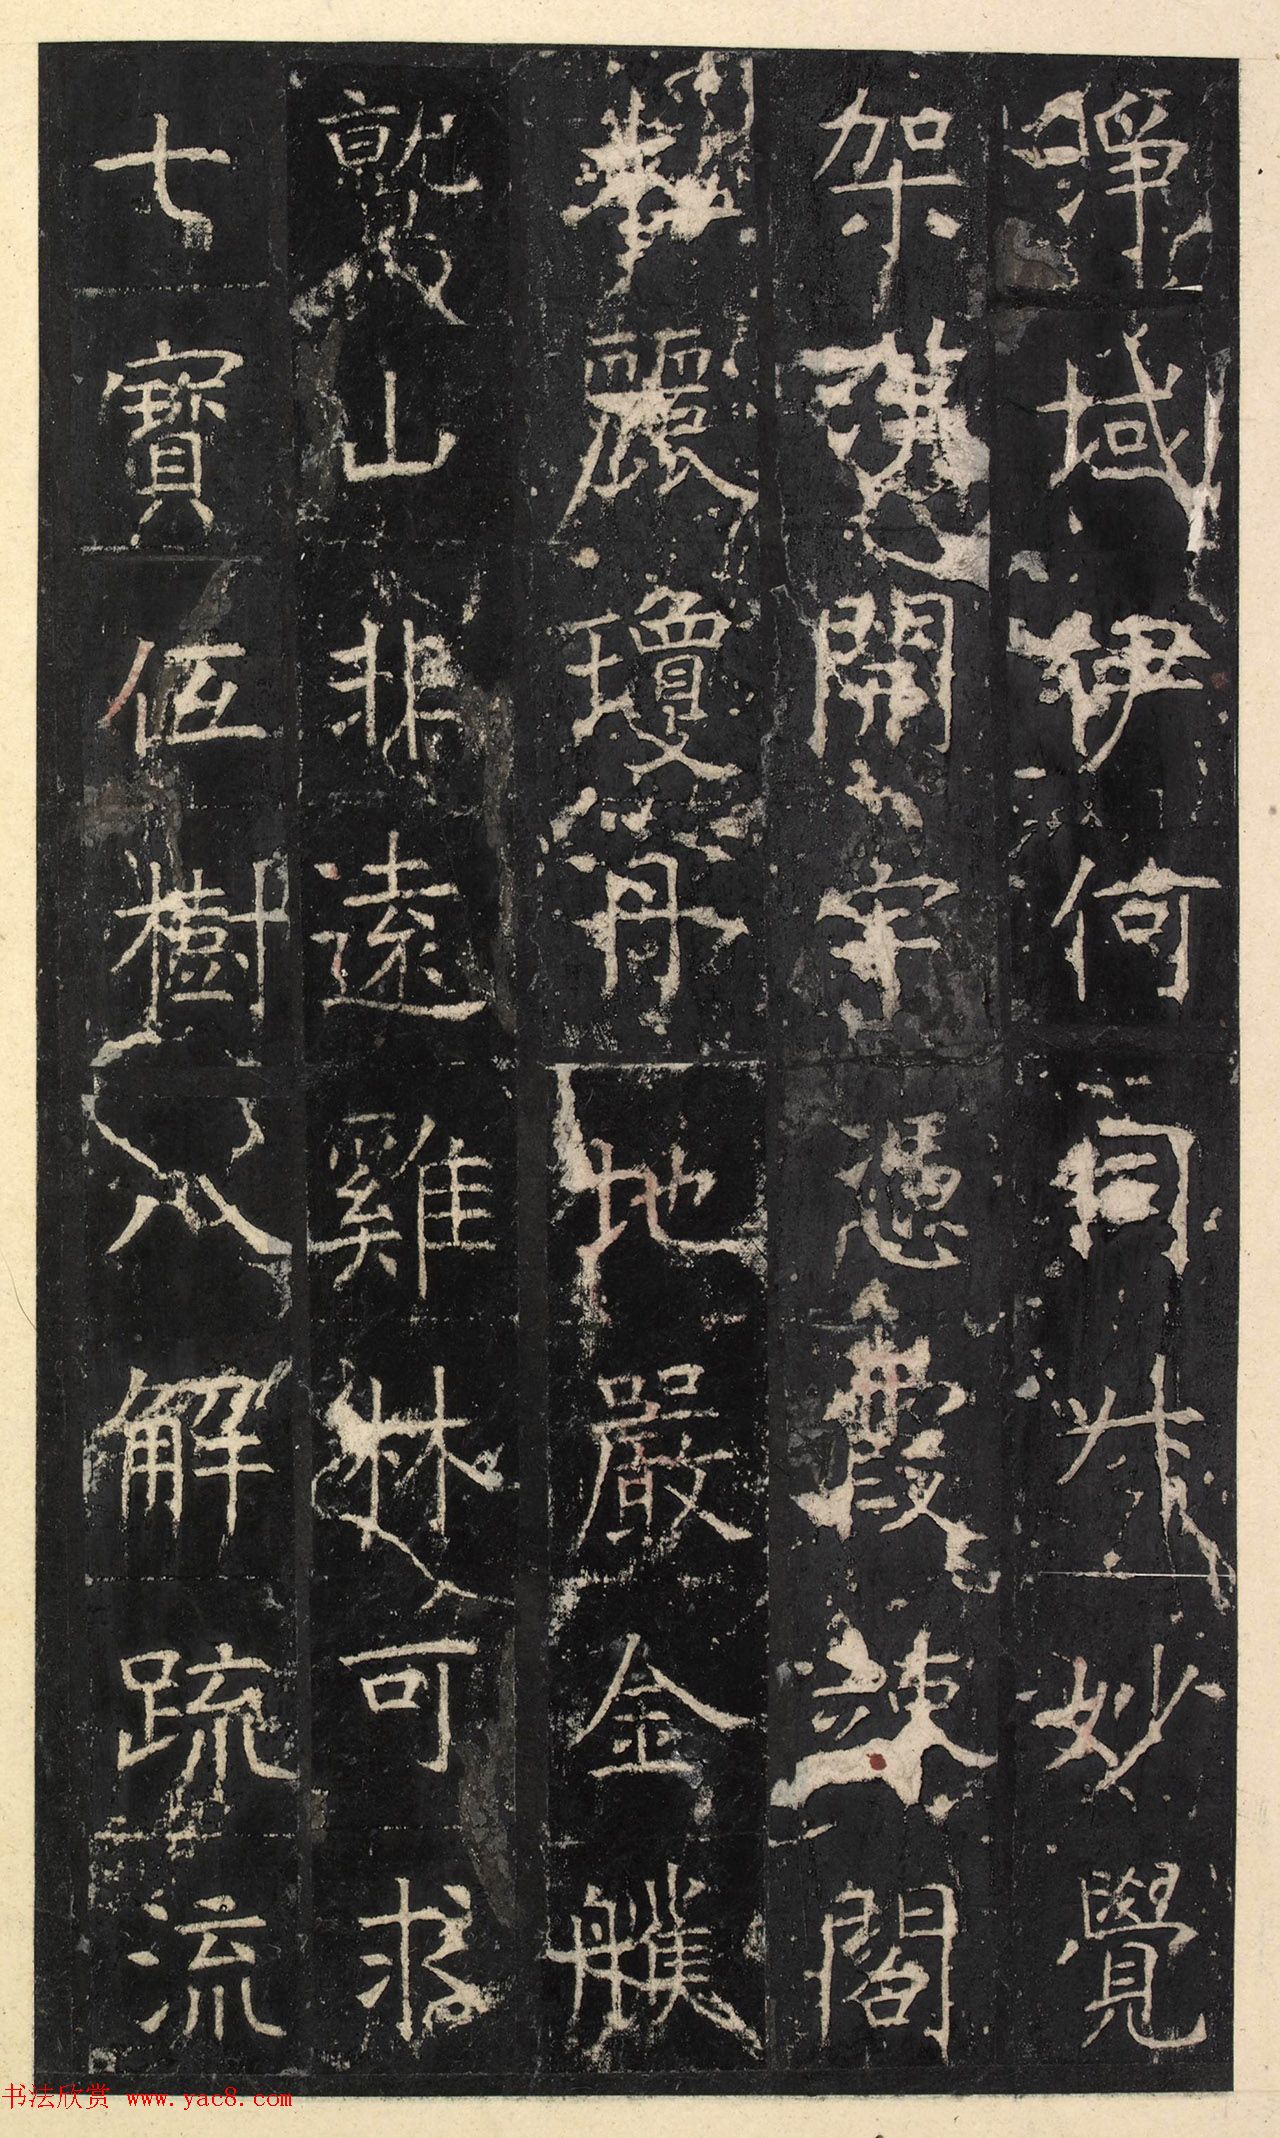 淨域伊何同升妙覺
架漢開宇憑霞疎閣
麗瓊丹地嚴金艧
鷲山非遠雞林可求
七寶仾樹八解疏流
书法欣赏 www.yac8.com